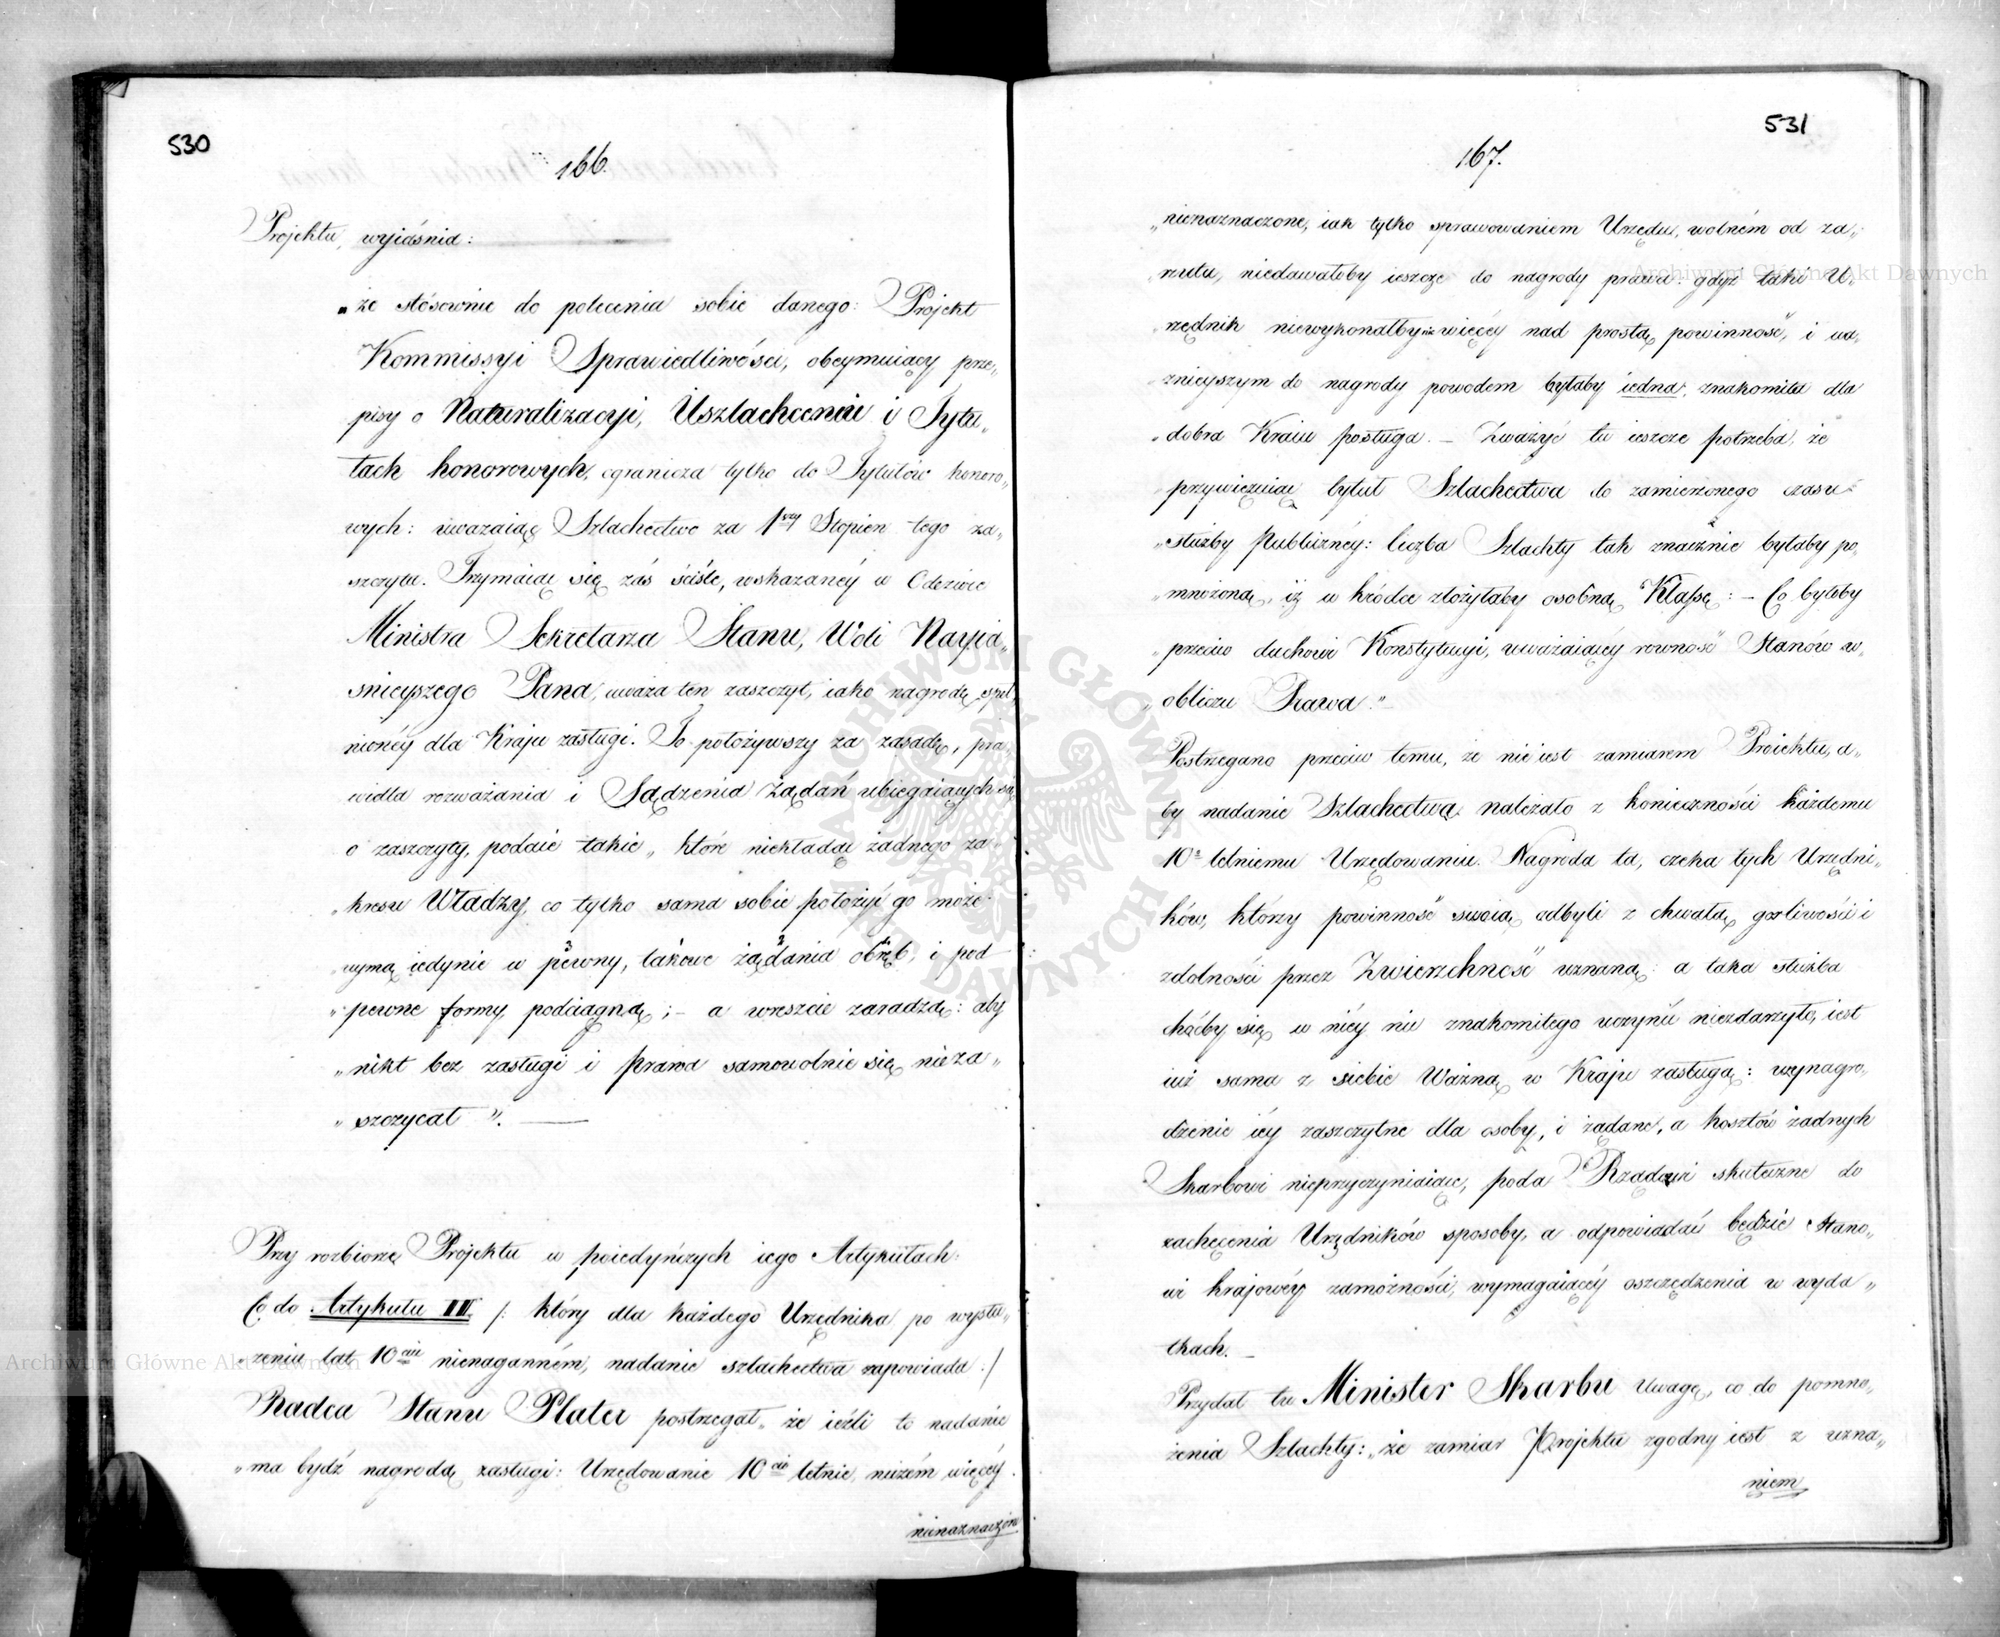 530
166.
Projektu, wyjaśnia:
„że stósownie do polecenia sobie danego: Projekt
Kommissyi Sprawiedliwości, obeymuiący prze„
pisy o Naturalizacyi, Uszlachceniu i Tytu„
łach honorowych, ogranicza tylko do Tytułów honoro„
wych: uważaiąc Szlachectwo za 1wszy Stopień tego za„
szczytu. Trzymaiąc się zaś ściśle, wskazanéy w Odezwie
Ministra Sekretarza Stanu, Woli Nayia„
śnieyszego Pana, uważa ten zaszczyt, iako nagrodę speł„
nionéy dla Kraju zasługi. To położywszy za zasadę, pra„
widła rozważania i Sądzenia Żądań ubiegaiących się
o zaszczyty, podaie takie, które niekładąc żadnego za„
„kresu Władzy, co tylko sama sobie położyć go może
uymą iedynie w pewny, takowe żądania obręb, i pod
„pewne formy podciągną; – a wreszcie zaradzą: aby
„nikt bez zasługi i prawa samowolnie się nieza„
„szczycał”.
Przy rozbiorze Projektu w poiedyńczych iego Artykułach:
Co do Artykułu III. /: który dla każdego Urzędnika po wysłu„
„żeniu lat 10ciu nienaganném, nadanie szlachectwa zapowiada :/
Radca Stanu Plater postrzegał „że ieźli to nadanie
„ma bydź nagrodą zasługi: Urzędowanie 10cio letnie, niczém więcéy
nienaznaczone
531
167.
„nienaznaczone, iak tylko sprawowaniem Urzędu, wolném od za„
„rzutu, niedawałoby ieszcze do nagrody prawa: gdyż taki U„
„rzędnik niewykonałby nic więcéy nad prostą powinność, i wa„
„żnieyszym do nagrody powodem byłaby iedna, znakomita dla
„dobra Kraiu posługa. – Zważyć tu ieszcze potrzeba, że
przywięzuiąc tytuł Szlachectwa do zamierzonego czasu
„służby Publicznéy: liczba Szlachty tak znacznie byłaby po„
„mnożoną, iż w krótce złożyłaby osobną Klassę: – Co byłoby
„przeciw duchowi Konstytucyi, uważaiącéy równość Stanów w„
„obliczu Prawa.”
Postrzegano przeciw temu, że nie iest zamiarem Proiektu, a„
by nadanie Szlachectwa należało z konieczności każdemu
10o letniemu Urzędowaniu. Nagroda ta, czeka tych Urzędni„
ków, którzy powinność swoią odbyli z chwałą gorliwości i
zdolności przez Zwierzchność uznaną: a taka służba
choćby się w niéy nic znakomitego uczynić niezdarzyło, iest
iuż sama z siebie Ważną w Kraju zasługą: wynagro„
dzenie iéy zaszczytne dla osoby, i żądane, a kosztów żadnych
Skarbowi nieprzyczyniaiąc, poda Rządowi skuteczne do
zachęcenia Urzędników sposoby, a odpowiadać będzie Stano„
wi krajowéy zamożności, wymagaiącéy oszczędzenia w wyda„
tkach. –
Przydał tu Minister Skarbu Uwagę, co do pomno„
żenia Szlachty: „że zamiar Projektu zgodny iest z uzna„
niem